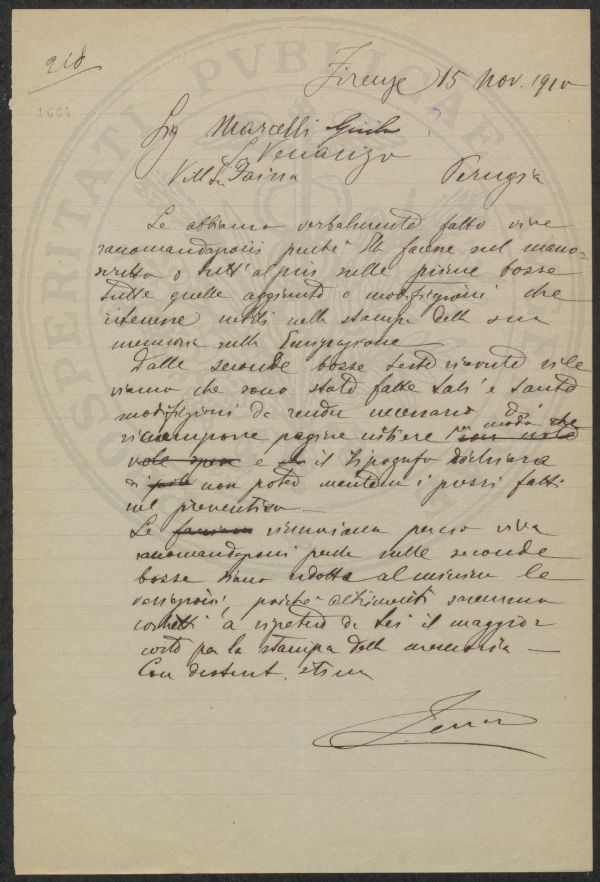 218
Firenze 15 Nov. 1910
1664
Sig Marcelli Giulio
S. Venanzo
Villa Faina Perugia
Le abbiamo verbalmente fatto vive
raccomandazioni perché Ella facesse nel mano-
scritto o tutt'al più sulle prime bozze
tutte quelle aggiunte o modificazioni che
ritenesse utili nella stampa della sua
memoria sulla Emigrazione
Dalle seconde bozze testé ricevute rile
viamo che sono state fatte tali e tante
modificazioni da render necessario
ricomporre pagine intiere per modo che
e il tipografo dichiara
di non poter mantener i prezzi fatti
nel preventivo —
Le rinnoviamo perciò viva
raccomandazioni perché sulle seconde
bozze siano ridotte al minimo le
variazioni, poiché altrimenti saremmo
costretti a ripetere da Lei il maggior
costo per la stampa della memoria —
Con distint. stima
PERITATI PVBLICAE